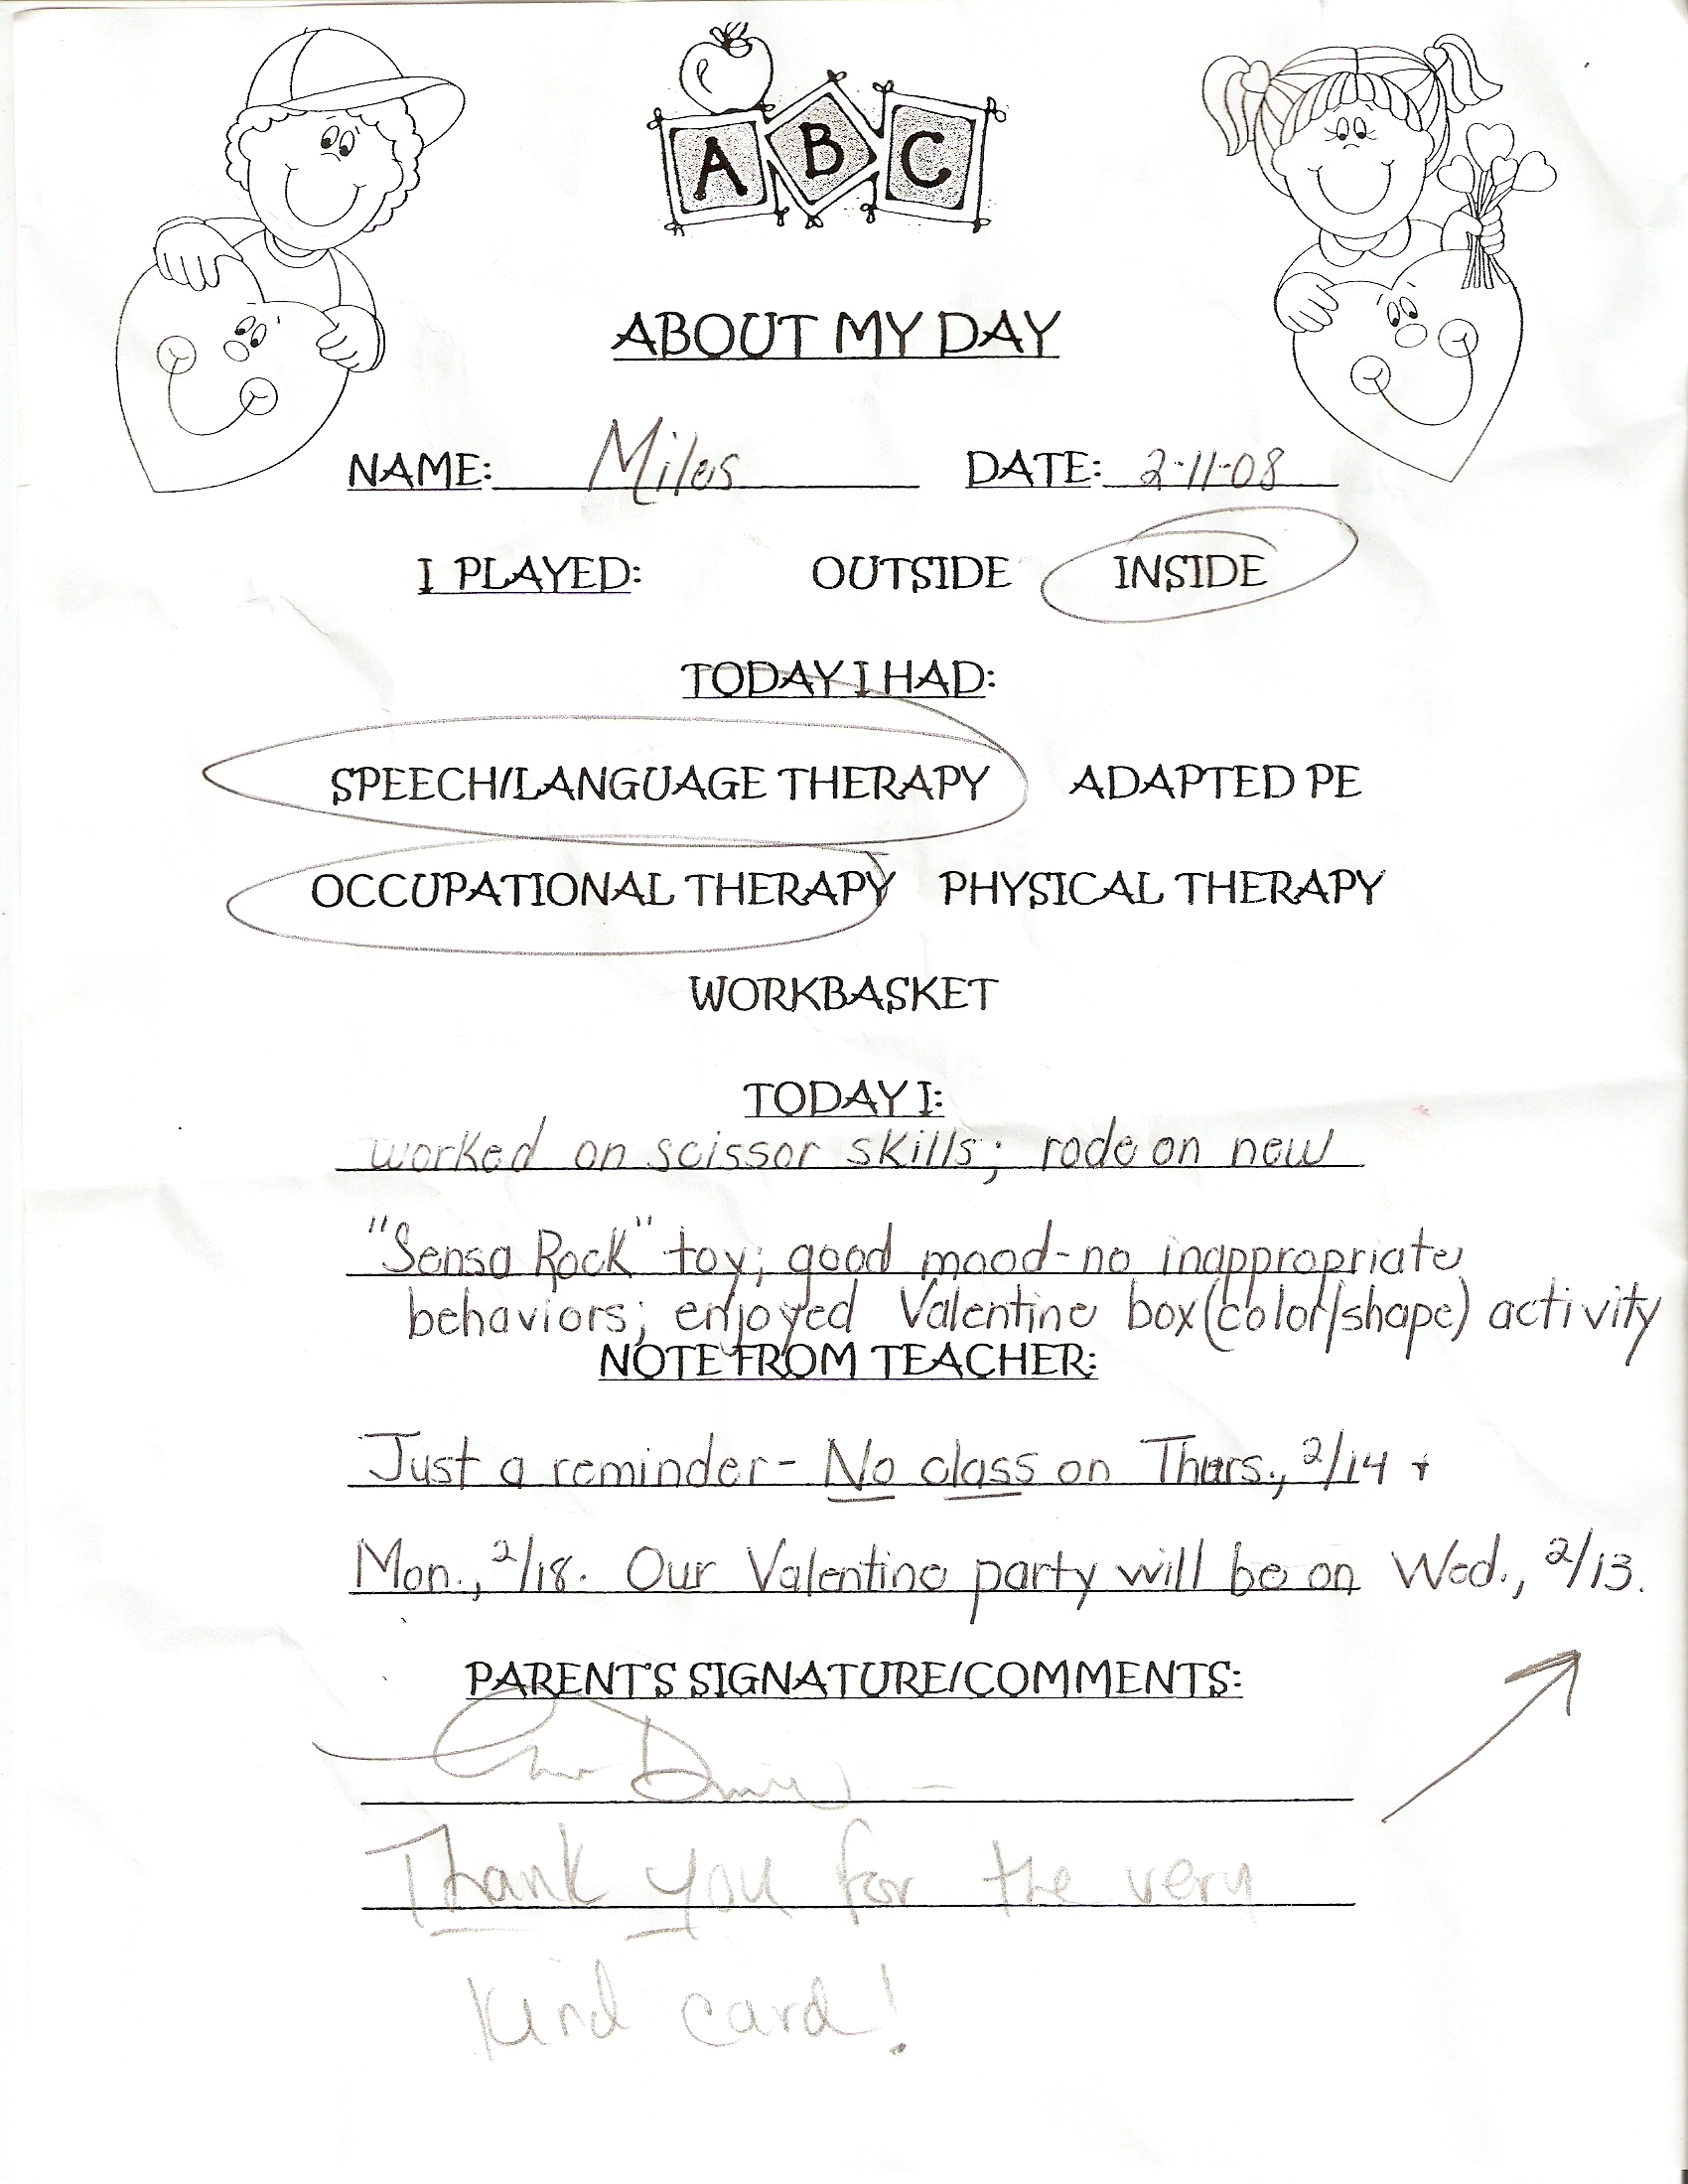 A B C
ABOUT MY DAY
NAME: Miles DATE: 2-11-08
I PLAYED: OUTSIDE INSIDE
TODAY I HAD:
SPEECH/LANGUAGE THERAPY ADAPTED PE
OCCUPATIONAL THERAPY PHYSICAL THERAPY
WORKBASKET
TODAY I:
worked on scissor skills; rode on new
"Sensa Rock" toy; good mood-no inappropriate
behaviors; enjoyed Valentine box (color/shape) activity
NOTE FROM TEACHER:
Just a reminder- No class on Thurs., 2/14 +
Mon., 2/18. Our Valentine party will be on Wed., 2/13.
PARENT'S SIGNATURE/COMMENTS:
Thank you for the very
kind card!